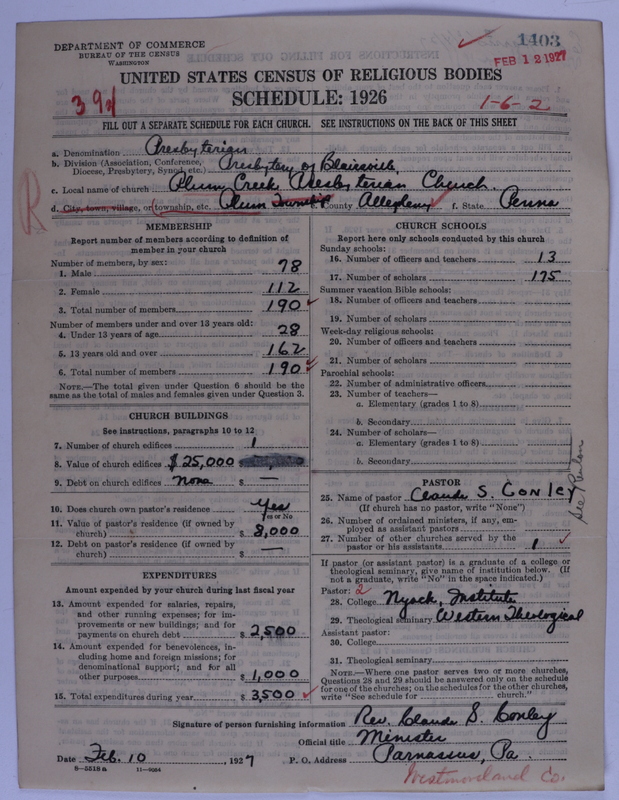 DEPARTMENT OF COMMERCE
BUREAU OF THE CENSUS
WASHINGTON
1403
FEB 12 1927
UNITED STATES CENSUS OF RELIGIOUS BODIES
394
SCHEDULE: 1926
1-6-2
FILL OUT A SEPARATE SCHEDULE FOR EACH CHURCH. SEE INSTRUCTIONS ON THE BACK OF THIS SHEET
a. Denomination Presbyterian
b. Division (Association, Conference, Diocese, Presbytery, Synod, etc.) Presbytery of Blairsville,
c. Local name of church Plum Creek Presbyterian Church.
R
d. City, town, village, or township, etc. Plum Township e. County Allegheny f. State Penna
MEMBERSHIP
Report number of members according to definition of
member in your church
Number of members, by sex:
1. Male 78
2. Female 112
3. Total number of members 190
Number of members under and over 13 years old:
4. Under 13 years of age 28
5. 13 years old and over 162
6. Total number of members 190
NOTE.—The total given under Question 6 should be the
same as the total of males and females given under Question 3.
CHURCH BUILDINGS
See instructions, paragraphs 10 to 12
7. Number of church edifices 1
8. Value of church edifices $25,000
9. Debt on church edifices None $ —
10. Does church own pastor's residence Yes
Yes or No
11. Value of pastor's residence (if owned by
church) $ 8,000
12. Debt on pastor's residence (if owned by
church) $ —
EXPENDITURES
Amount expended by your church during last fiscal year
13. Amount expended for salaries, repairs,
and other running expenses; for im-
provements or new buildings; and for
payments on church debt $ 2,500
14. Amount expended for benevolences, in-
cluding home and foreign missions; for
denominational support; and for all
other purposes $ 1,000
15. Total expenditures during year $ 3,500
CHURCH SCHOOLS
Report here only schools conducted by this church
Sunday schools:
16. Number of officers and teachers 13
17. Number of scholars 175
Summer vacation Bible schools:
18. Number of officers and teachers
19. Number of scholars
Week-day religious schools:
20. Number of officers and teachers
21. Number of scholars
Parochial schools:
22. Number of administrative officers
23. Number of teachers—
a. Elementary (grades 1 to 8)
b. Secondary
24. Number of scholars—
a. Elementary (grades 1 to 8)
b. Secondary
PASTOR
25. Name of pastor Claude S. Conley
(If church has no pastor, write "None")
See Renton
26. Number of ordained ministers, if any, em-
ployed as assistant pastors
27. Number of other churches served by the
pastor or his assistants 1
If pastor (or assistant pastor) is a graduate of a college or
theological seminary, give name of institution below. (If
not a graduate, write "No" in the space indicated.)
Pastor: 2
28. College Nyack, Institute
29. Theological seminary Western Theological
Assistant pastor:
30. College
31. Theological seminary
NOTE.—Where one pastor serves two or more churches,
Questions 28 and 29 should be answered only on the schedule
for one of the churches; on the schedules for the other churches,
write "See schedule for church."
Signature of person furnishing information Rev. Claude S. Conley
Official title Minister
Date Feb. 10, 1927 P. O. Address Parnassus, Pa.
8—5518 a 11—9034
Westmoreland Co.